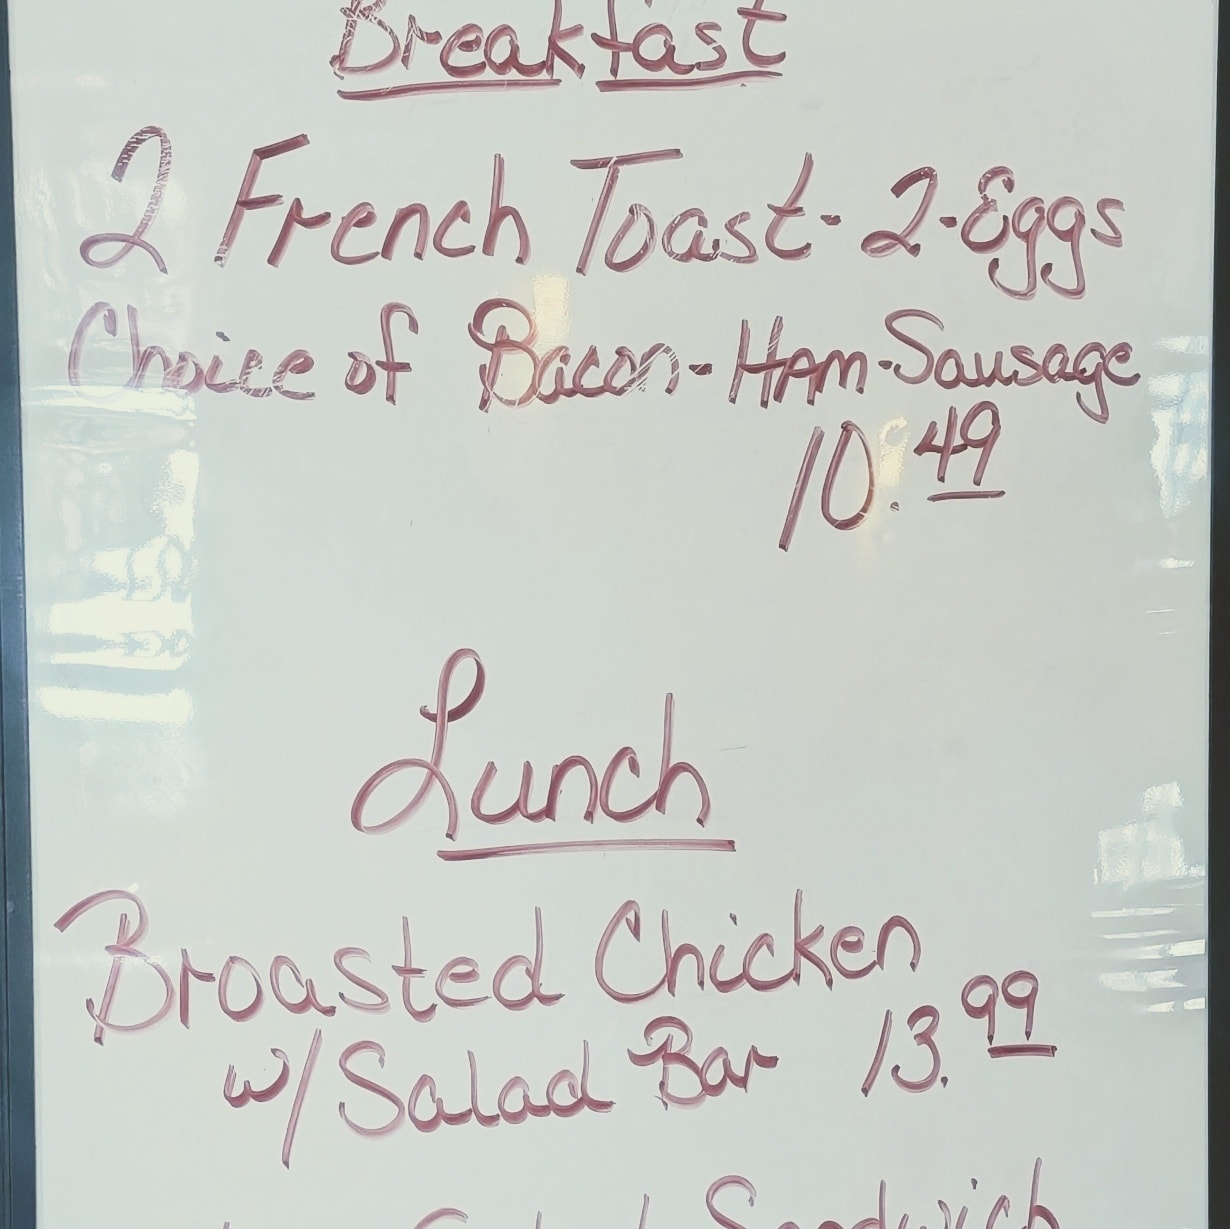 Breakfast
2 French Toast - 2 - Eggs
Choice of Bacon - HAm - Sausage
10.49
Lunch
Broasted Chicken
w/ Salad Bar 13.99
Sandwich